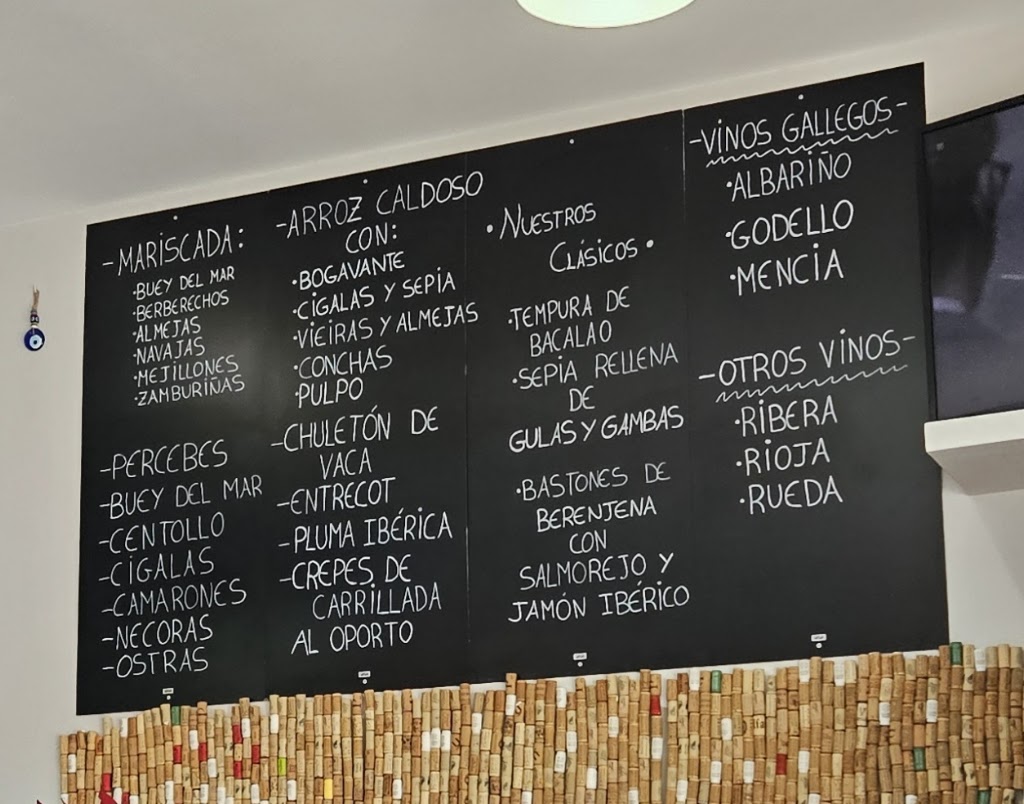 -MARISCADA:
·BUEY DEL MAR
·BERBERECHOS
·ALMEJAS
·NAVAJAS
·MEJILLONES
·ZAMBURIÑAS
-PERCEBES
-BUEY DEL MAR
-CENTOLLO
-CIGALAS
-CAMARONES
-NECORAS
-OSTRAS
-ARROZ CALDOSO
CON:
·BOGAVANTE
·CIGALAS Y SEPIA
·VIEIRAS Y ALMEJAS
·CONCHAS
·PULPO
-CHULETÓN DE
VACA
-ENTRECOT
-PLUMA IBÉRICA
-CREPES DE
CARRILLADA
AL OPORTO
·NUESTROS
CLÁSICOS·
·TEMPURA DE
BACALAO
·SEPIA RELLENA
DE
GULAS Y GAMBAS
·BASTONES DE
BERENJENA
CON
SALMOREJO Y
JAMÓN IBÉRICO
-VINOS GALLEGOS-
·ALBARIÑO
·GODELLO
·MENCIA
-OTROS VINOS-
·RIBERA
·RIOJA
·RUEDA